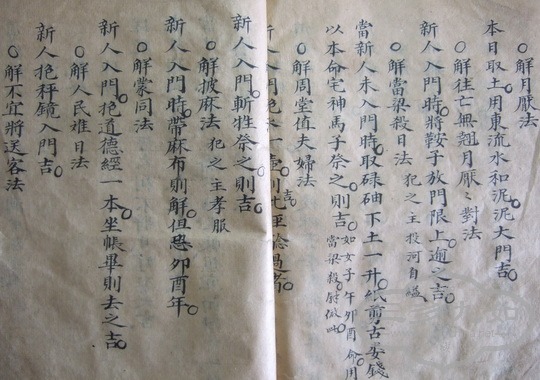 ○解月厭法
本日取土用東流水和泥泥大門吉
○解往亡無翹月厭〻對法
新人入門時將鞍子放門限上逾之吉
○解當梁殺日法 犯之主投河自縊
當新人未入門時取碌下土一升紙剪古錢
以本命宅神馬子祭之則吉 如女子午卯酉命用
當梁殺
○解周堂值夫婦法
新人入門
新人入門斬牲祭之則吉
○解披麻法 犯之主孝服
新人入門時帶麻布則解但忌卯酉年
○解蒙同法
新人入門抱道德經一本坐帳畢則去之吉
○解人民日法
新人抱秤鏡入門吉
○解不宜將送客法